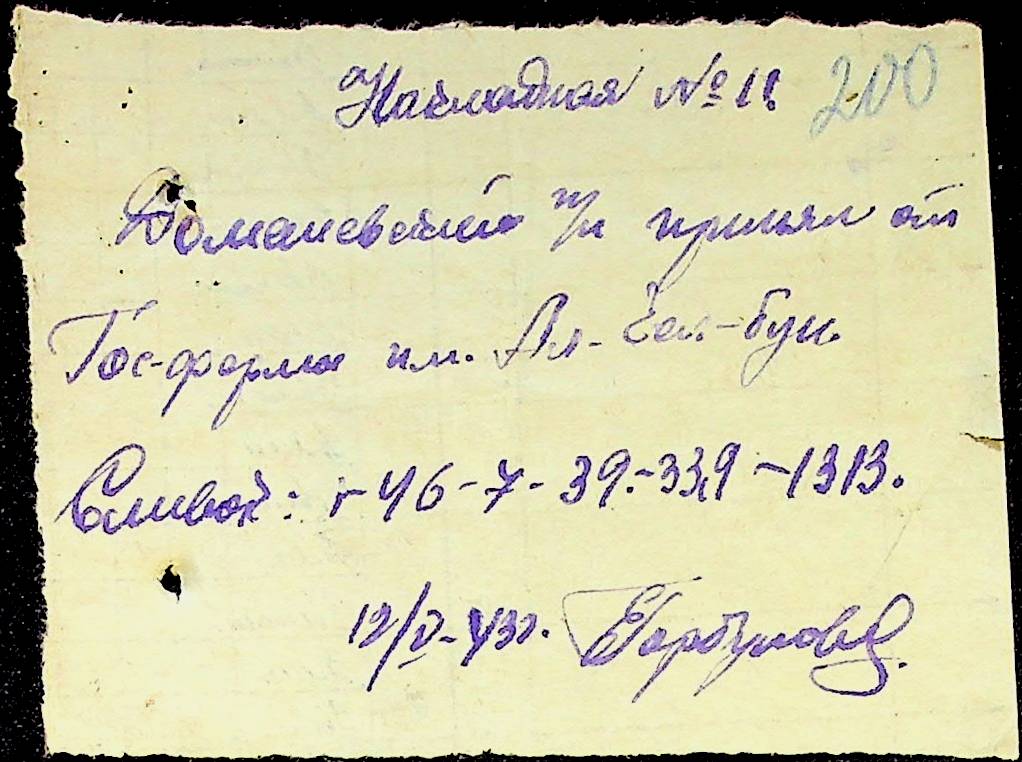 Накладная № 11. 200
Доманевский п/п принял от
Гос-ферма им. Ал-
Сливок: г-46-7-39.-33,9-1313.
12/V-43г. Горбунова